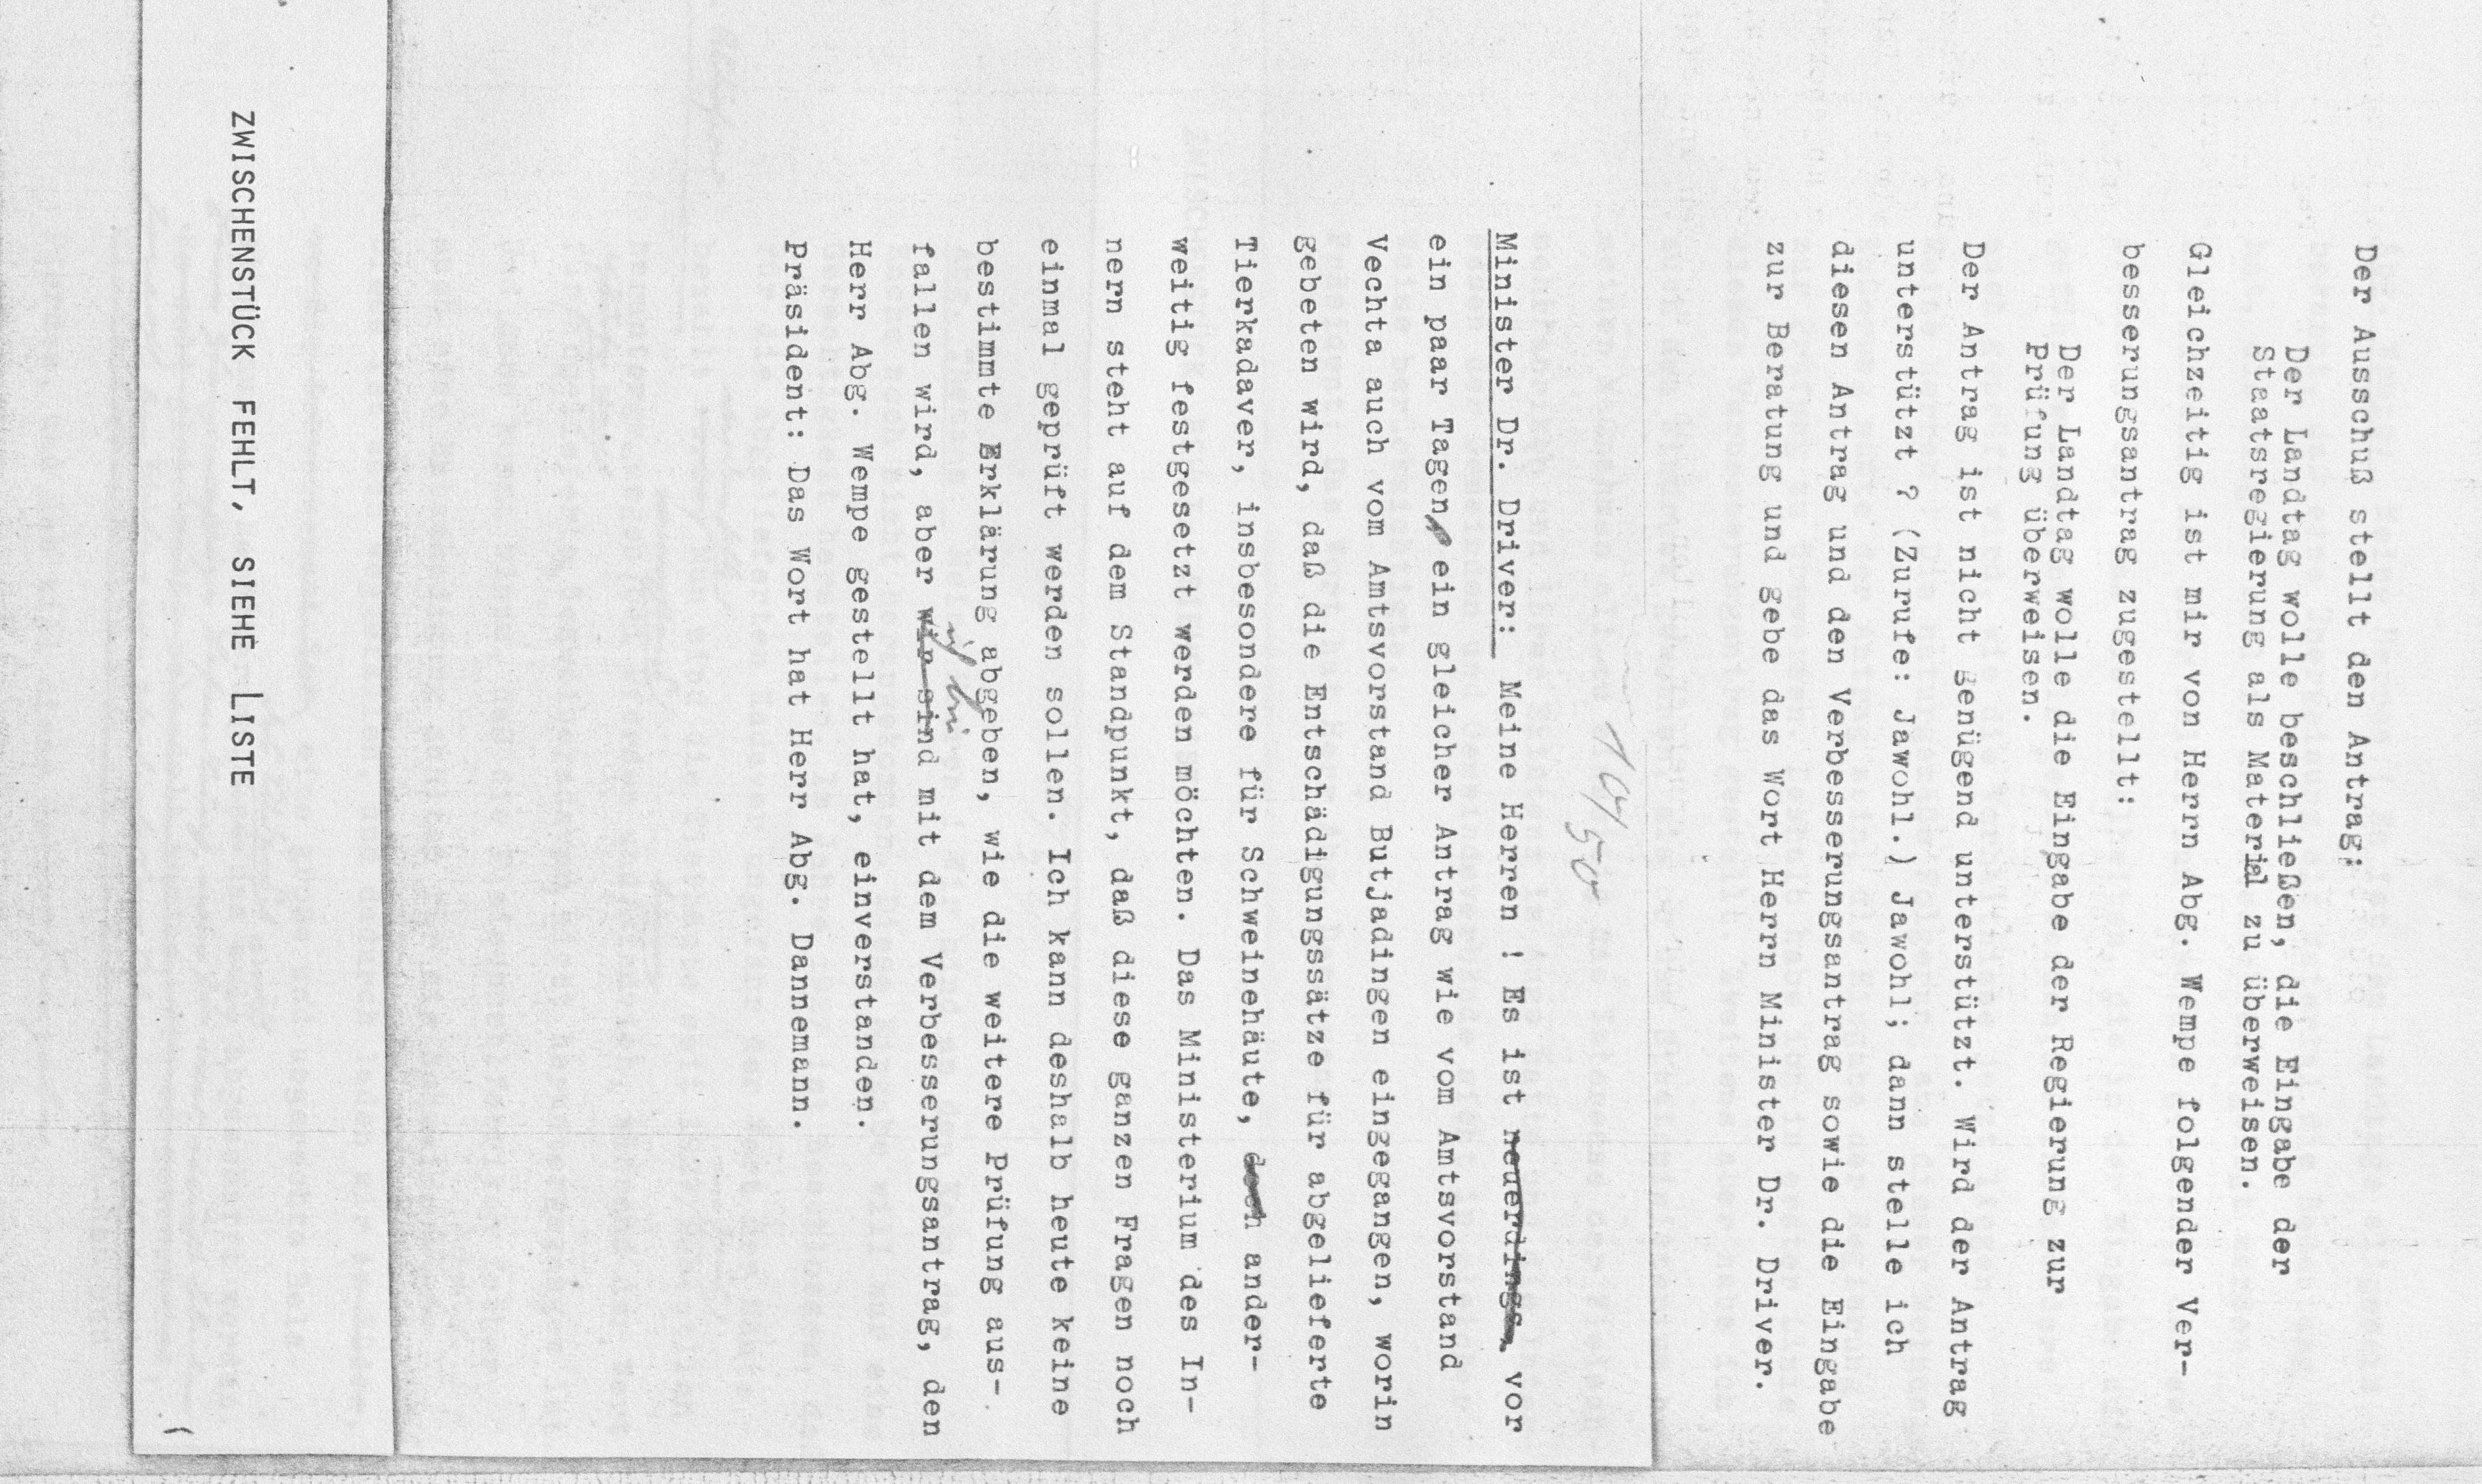 Der Ausschuß stellt den Antrag:
Der Landtag wolle beschließen, die Eingabe der
Staatsregierung als Material zu überweisen.
Gleichzeitig ist mir von Herrn Abg. Wempe folgender Ver-
besserungsantrag zugestellt:
Der Landtag wolle die Eingabe der Regierung zur
Prüfung überweisen.
Der Antrag ist nicht genügend unterstützt. Wird der Antrag
unterstützt ? (Zurufe: Jawohl.) Jawohl; dann stelle ich
diesen Antrag und den Verbesserungsantrag sowie die Eingabe
zur Beratung und gebe das Wort Herrn Minister Dr. Driver.
104/50
Minister Dr. Driver: Meine Herren ! Es ist neuerdings, vor
ein paar Tagen ein gleicher Antrag wie vom Amtsvorstand
Vechta auch vom Amtsvorstand Butjadingen eingegangen, worin
gebeten wird, daß die Entschädigungssätze für abgelieferte
Tierkadaver, insbesondere für Schweinehäute, doch ander-
weitig festgesetzt werden möchten. Das Ministerium des In-
nern steht auf dem Standpunkt, daß diese ganzen Fragen noch
einmal geprüft werden sollen. Ich kann deshalb heute keine
bestimmte Erklärung abgeben, wie die weitere Prüfung aus-
ich bin
fallen wird, aber wir sind mit dem Verbesserungsantrag, den
Herr Abg. Wempe gestellt hat, einverstanden.
Präsident: Das Wort hat Herr Abg. Dannemann.
ZWISCHENSTÜCK FEHLT, SIEHE LISTE